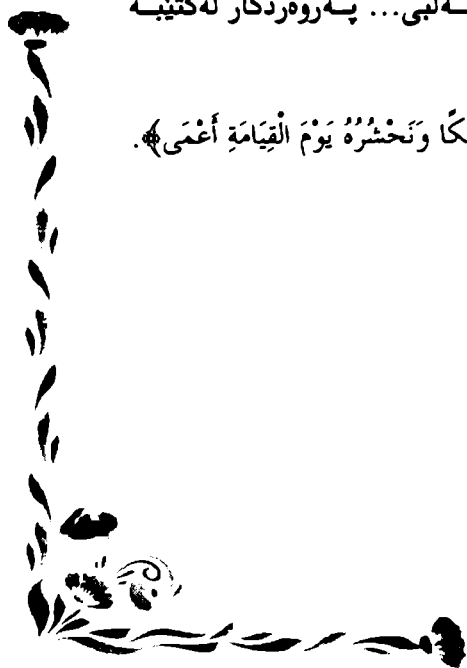 ــەڵبی... پــەروەردگار لەکتێبــە
ـكًا وَنَحْشُرُهُ يَوْمَ الْقِيَامَةِ أَعْمَى﴾.